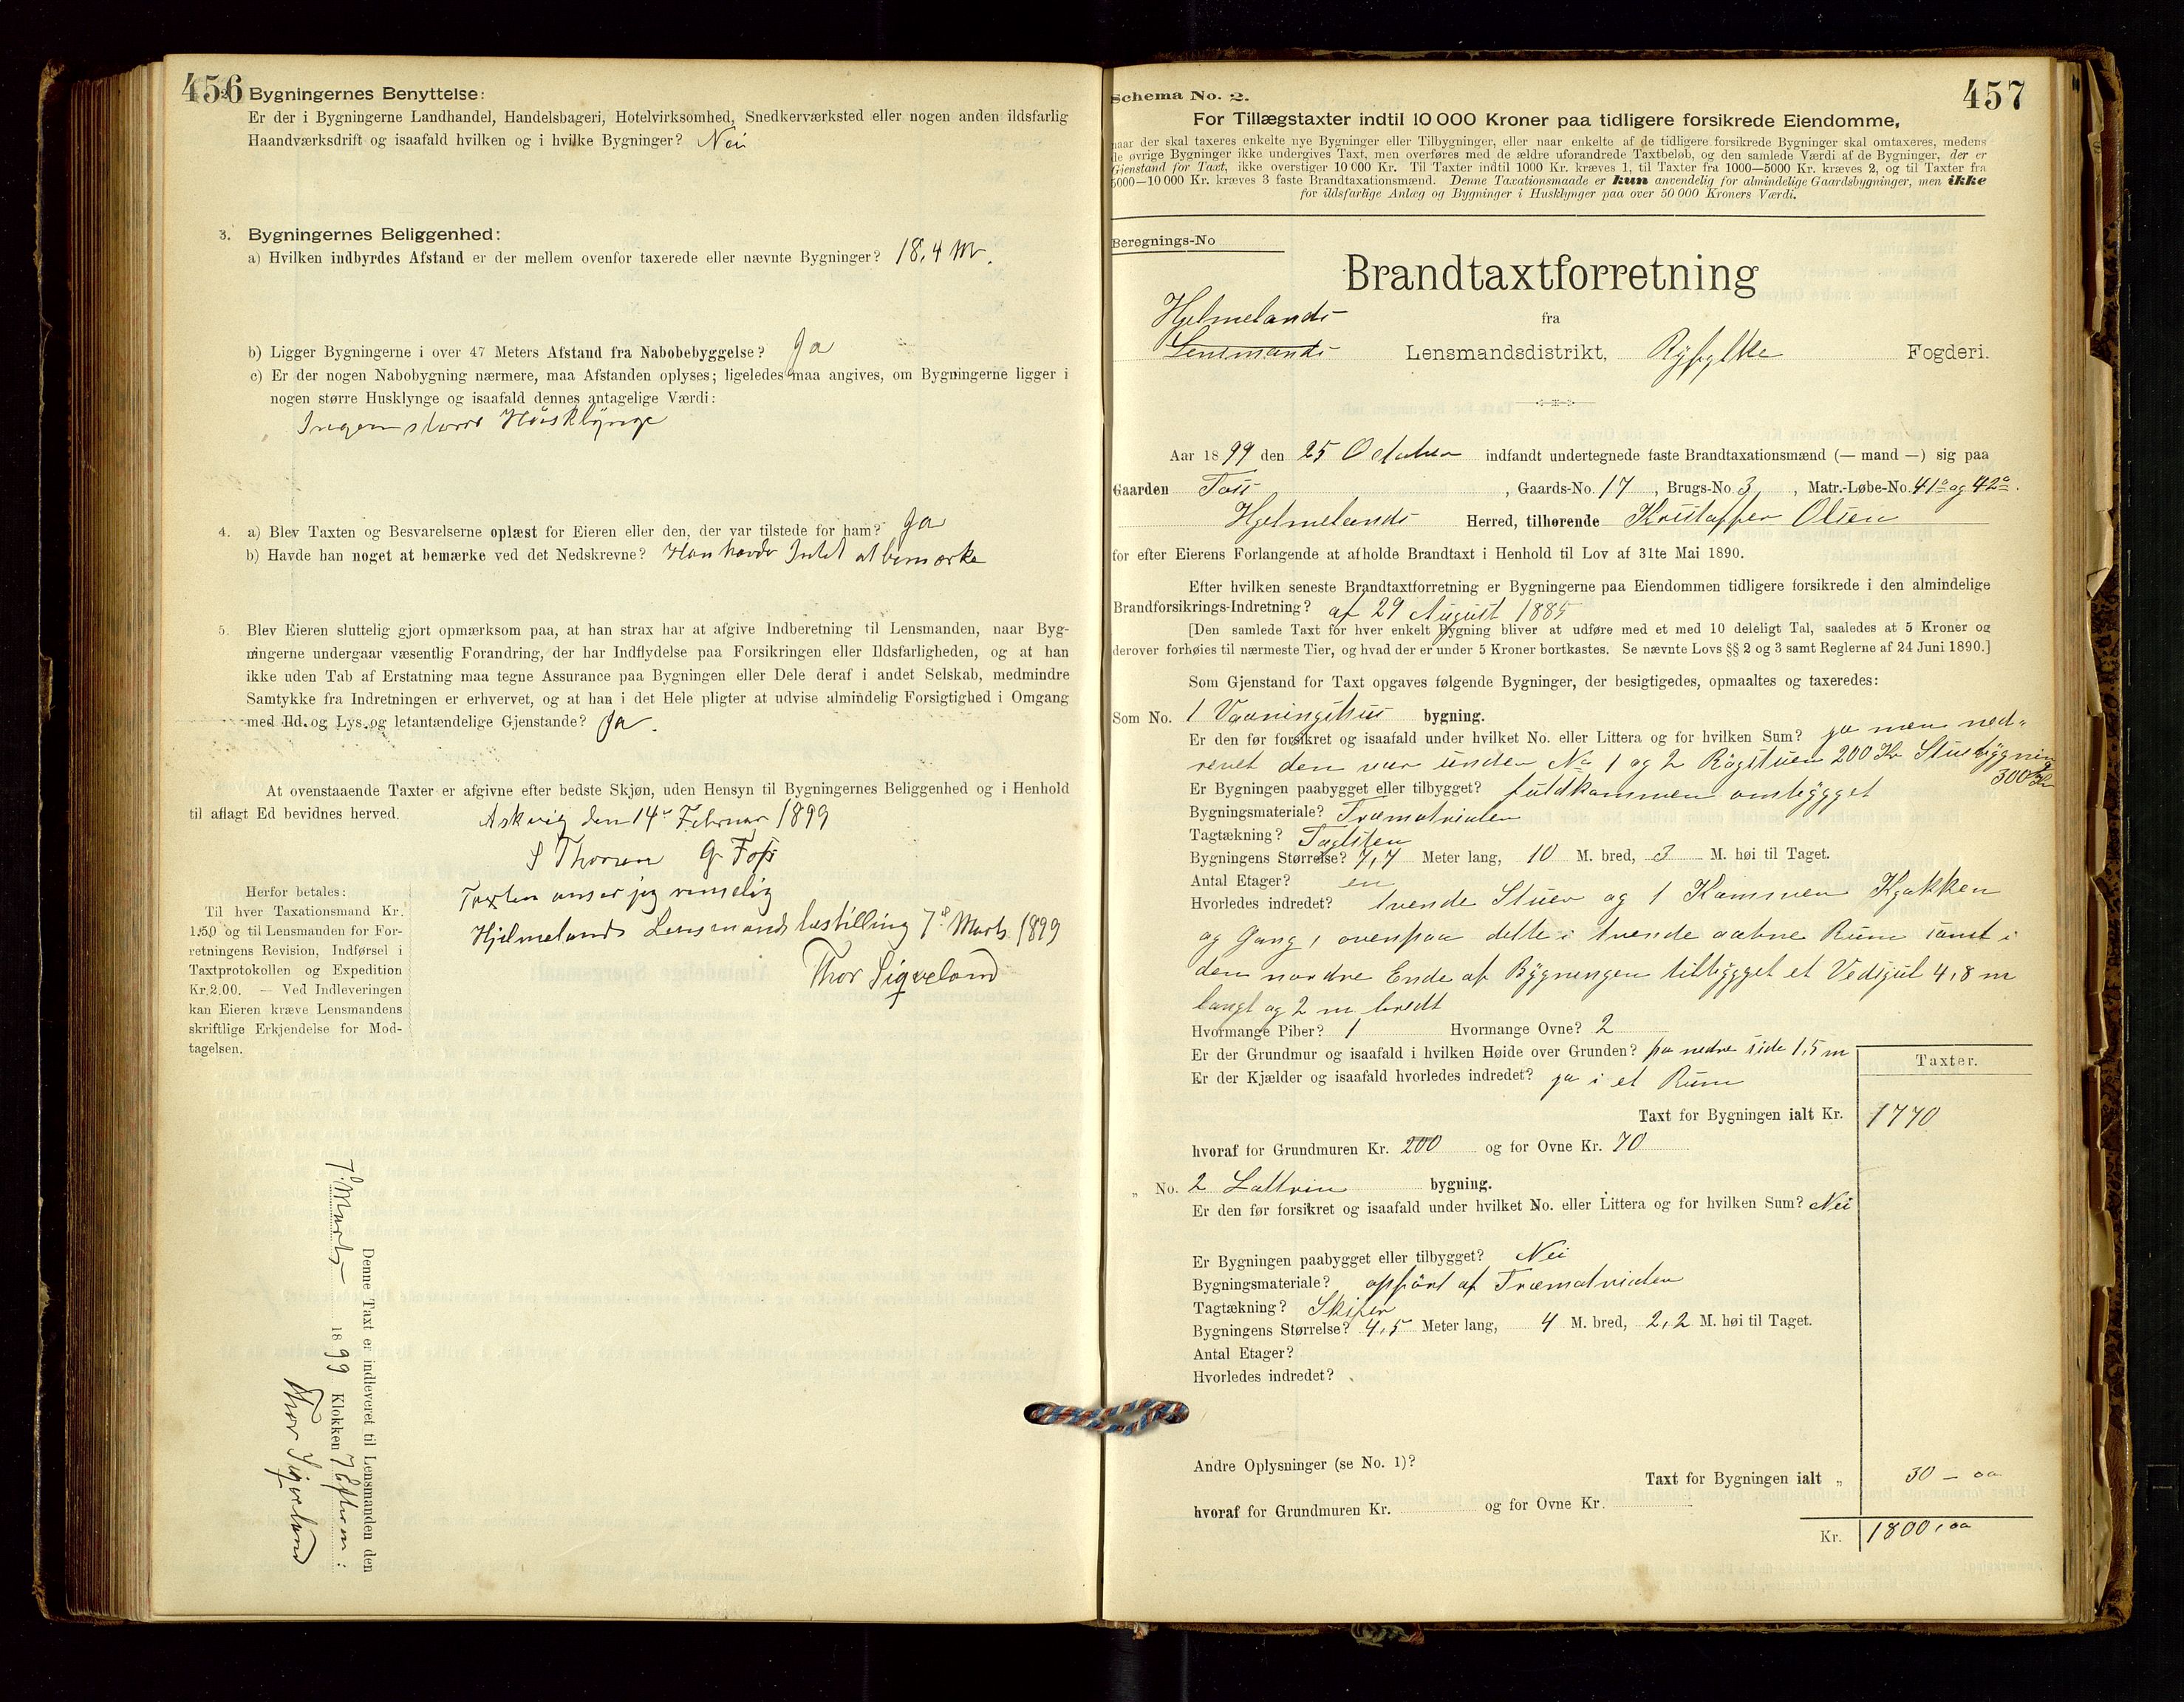 456
Bygningernes Benyttelse:
Er der i Bygningerne Landhandel, Handelsbageri, Hotelvirksomhed, Snedkerværksted eller nogen anden ildsfarlig
Haandværksdrift og isaafald hvilken og i hvilke Bygninger? Nei
3. Bygningernes Beliggenhed:
a) Hvilken indbyrdes Afstand er der mellem ovenfor taxerede eller nævnte Bygninger? 18,4 M.
b) Ligger Bygningerne i over 47 Meters Afstand fra Nabobebyggelse? Ja
c) Er der nogen Nabobygning nærmere, maa Afstanden oplyses; ligeledes maa angives, om Bygningerne ligger i
nogen større Husklynge og isaafald dennes antagelige Værdi:
Ingen større Husklynge
4. a) Blev Taxten og Besvarelserne oplæst for Eieren eller den, der var tilstede for ham? Ja
b) Havde han noget at bemærke ved det Nedskrevne? Han havde Intet at bemærke
5. Blev Eieren sluttelig gjort opmærksom paa, at han strax har at afgive Indberetning til Lensmanden, naar Byg-
ningerne undergaar væsentlig Forandring, der har Indflydelse paa Forsikringen eller Ildsfarligheden, og at han
ikke uden Tab af Erstatning maa tegne Assurance paa Bygningen eller Dele deraf i andet Selskab, medmindre
Samtykke fra Indretningen er erhvervet, og at han i det Hele pligter at udvise almindelig Forsigtighed i Omgang
med Ild og Lys og letantændelige Gjenstande? Ja.
At ovenstaaende Taxter er afgivne efter bedste Skjøn, uden Hensyn til Bygningernes Beliggenhed og i Henhold
til aflagt Ed bevidnes herved.
Askvig den 14de Februar 1899
S Thorsen G. Foss
Taxten anser jeg rimelig
Hjelmelands Lensmandsbestilling 7de Marts 1899
Thor Sigveland
Herfor betales:
Til hver Taxationsmand Kr.
1.50 og til Lensmanden for For-
retningens Revision, Indførsel i
Taxtprotokollen og Expedition
Kr. 2.00. — Ved Indleveringen
kan Eieren kræve Lensmandens
skriftlige Erkjendelse for Mod-
tagelsen.
Denne Taxt er indleveret til Lensmanden den
7de Marts 1899 Klokken 7 Efterm:
Thor Sigveland
457
Schema No. 2.
For Tillægstaxter indtil 10 000 Kroner paa tidligere forsikrede Eiendomme,
naar der skal taxeres enkelte nye Bygninger eller Tilbygninger, eller naar enkelte af de tidligere forsikrede Bygninger skal omtaxeres, medens
de øvrige Bygninger ikke undergives Taxt, men overføres med de ældre uforandrede Taxtbeløb, og den samlede Værdi af de Bygninger, der er
Gjenstand for Taxt, ikke overstiger 10 000 Kr. Til Taxter indtil 1000 Kr. kræves 1, til Taxter fra 1000—5000 Kr. kræves 2, og til Taxter fra
5000—10 000 Kr. kræves 3 faste Brandtaxationsmænd. Denne Taxationsmaade er kun anvendelig for almindelige Gaardsbygninger, men ikke
for ildsfarlige Anlæg og Bygninger i Husklynger paa over 50 000 Kroners Værdi.
Beregnings-No
Brandtaxtforretning
Hjelmelands
fra
Lensmands Lensmandsdistrikt, Ryfylke Fogderi.
Aar 1899 den 25 October indfandt undertegnede faste Brandtaxationsmænd (— mand —) sig paa
Gaarden , Gaards-No. 17, Brugs-No. 3, Matr.-Løbe-No. 41a og 42a.
Hjelmelands Herred, tilhørende Kristoffer Olsen
for efter Eierens Forlangende at afholde Brandtaxt i Henhold til Lov af 31te Mai 1890.
Efter hvilken seneste Brandtaxtforretning er Bygningerne paa Eiendommen tidligere forsikrede i den almindelige
Brandforsikrings-Indretning? af 29 August 1885
[Den samlede Taxt for hver enkelt Bygning bliver at udføre med et med 10 deleligt Tal, saaledes at 5 Kroner og
derover forhøies til nærmeste Tier, og hvad der er under 5 Kroner bortkastes. Se nævnte Lovs §§ 2 og 3 samt Reglerne af 24 Juni 1890.]
Som Gjenstand for Taxt opgaves følgende Bygninger, der besigtigedes, opmaaltes og taxeredes:
Som No. 1 Vaaningshus bygning.
Er den før forsikret og isaafald under hvilket No. eller Littera og for hvilken Sum? ja men ned-
revet den var under No 1 og 2 Røgstuen 200 Kr Stuebygning
300 Kr
Er Bygningen paabygget eller tilbygget? fuldkommen ombygget
Bygningsmateriale? Træmaterialer
Tagtækning? Taglsten
Bygningens Størrelse? 7,7 Meter lang, 10 M. bred, 3 M. høi til Taget.
Antal Etager? en
Hvorledes indredet? tvende Stuer og 1 Kammer Kjøkken
og Gang, ovenpaa dette i tvende aabne Rum samt i
den nordre Ende af Bygningen tilbygget et Vedsjul 4,8 m
langt og 2 m bredt
Hvormange Piber? 1 Hvormange Ovne? 2
Er der Grundmur og isaafald i hvilken Høide over Grunden? paa nedre side 1,5 m
Er der Kjælder og isaafald hvorledes indredet? ja i et Rum
Taxter.
Taxt for Bygningen ialt Kr. 1770
hvoraf for Grundmuren Kr. 200 og for Ovne Kr. 70
„ No. 2 Lattrin bygning.
Er den før forsikret og isaafald under hvilket No. eller Littera og for hvilken Sum? Nei
Er Bygningen paabygget eller tilbygget? Nei
Bygningsmateriale? opført af Træmaterialer
Tagtækning? Skifer
Bygningens Størrelse? 4,5 Meter lang, 4 M. bred, 2,2 M. høi til Taget.
Antal Etager?
Hvorledes indredet?
Andre Oplysninger (se No. 1)?
Taxt for Bygningen ialt „ 30 – 00
hvoraf for Grundmuren Kr. og for Ovne Kr.
Kr. 1800,00